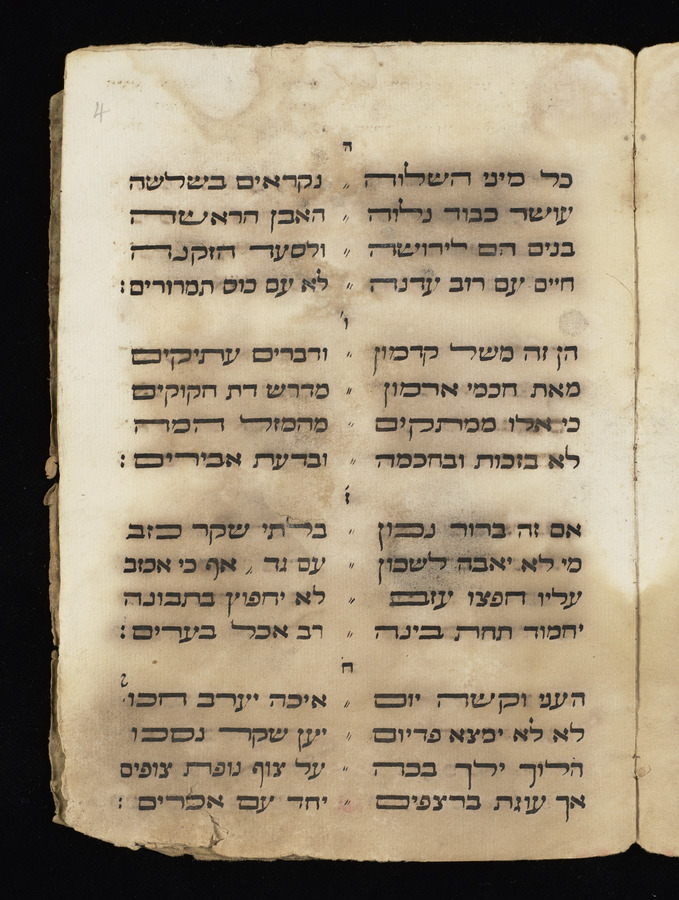 4
ה
כל מיני השלוה ״ נקראים בשלשה
עושר כבוד נלוה ״ האבן הראשה
בנים הם לירושה ״ ולסעד הזקנה
חיים עם רוב עדנה ״ לא עם כוס תמרורים :
ו
הן זה משל קדמון ״ ודברים עתיקים
מאת חכמי ארמון ״ מדרש דת חקוקים
כי אלו ממתקים ״ מהמזל המה
לא בזכות ובחכמה ״ ובדעת אבירים :
ז
אם זה ברור נכון ״ בלתי שקר כזב
מי לא יאבה לשכון ״ עם גד , אף כי אכזב
עליו חפצו עזב ״ לא יחפוץ בתבונה
יחמוד תחת בינה ״ רב אכל בערים :
ח
העני וקשה יום ״ איכה יערב חכו
לא לא ימצא פדיום ״ יען שקר נסכו
הלוך ילך בכה ״ על צוף נופת צופים
אך עוגת ברצפים ״ יחד עם אכרים :